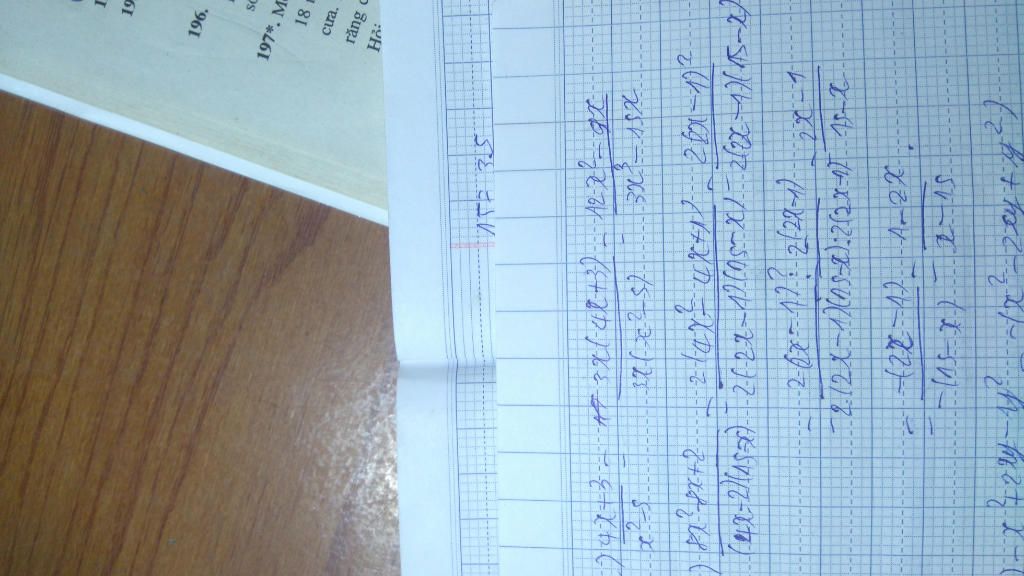 196.
197*. M
18
cưa.
răng c
Hỏi
15 = 35
) 4x+3 / x²-5 = 3x(4x+3) / 3x(x²-5) = 12x²-9x / 3x³-15x
) 8x²-8x+2 / (4x-2)(15-x) = 2(4x²-4x+1) / 2(2x-1)(15-x) = 2(2x-1)² / 2(2x-1)(15-x)
= 2(2x-1)² : 2(2x-1) / 2(2x-1)(15-x):2(2x-1) = 2x-1 / 15-x
= -(2x-1) / -(15-x) = 1-2x / x-15.
) -x²+2xy-y² = -(x²-2xy+y²)